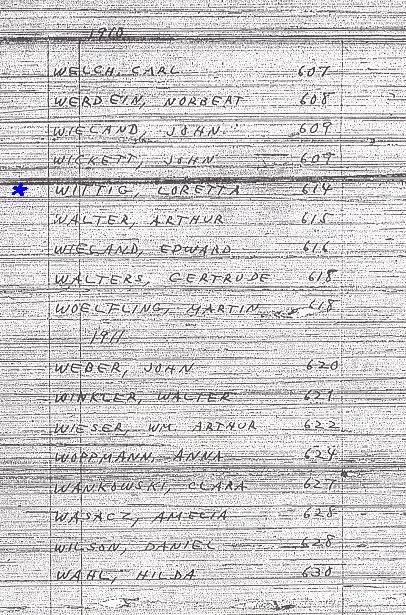 1910
WELCH, CARL 607
WERDEIN, NORBERT 608
WIELAND, JOHN 609
WICKETT, JOHN 609
WITTIG, LORETTA 614
WALTER, ARTHUR 615
WIELAND, EDWARD 616
WALTERS, GERTRUDE 618
WOELFLING, MARTIN 618
1911
WEBER, JOHN 620
WINKLER, WALTER 621
WIESER, WM. ARTHUR 622
WOPPMANN, ANNA 624
WANKOWSKI, CLARA 627
WASACZ, AMELIA 628
WILSON, DANIEL 628
WAHL, HILDA 630